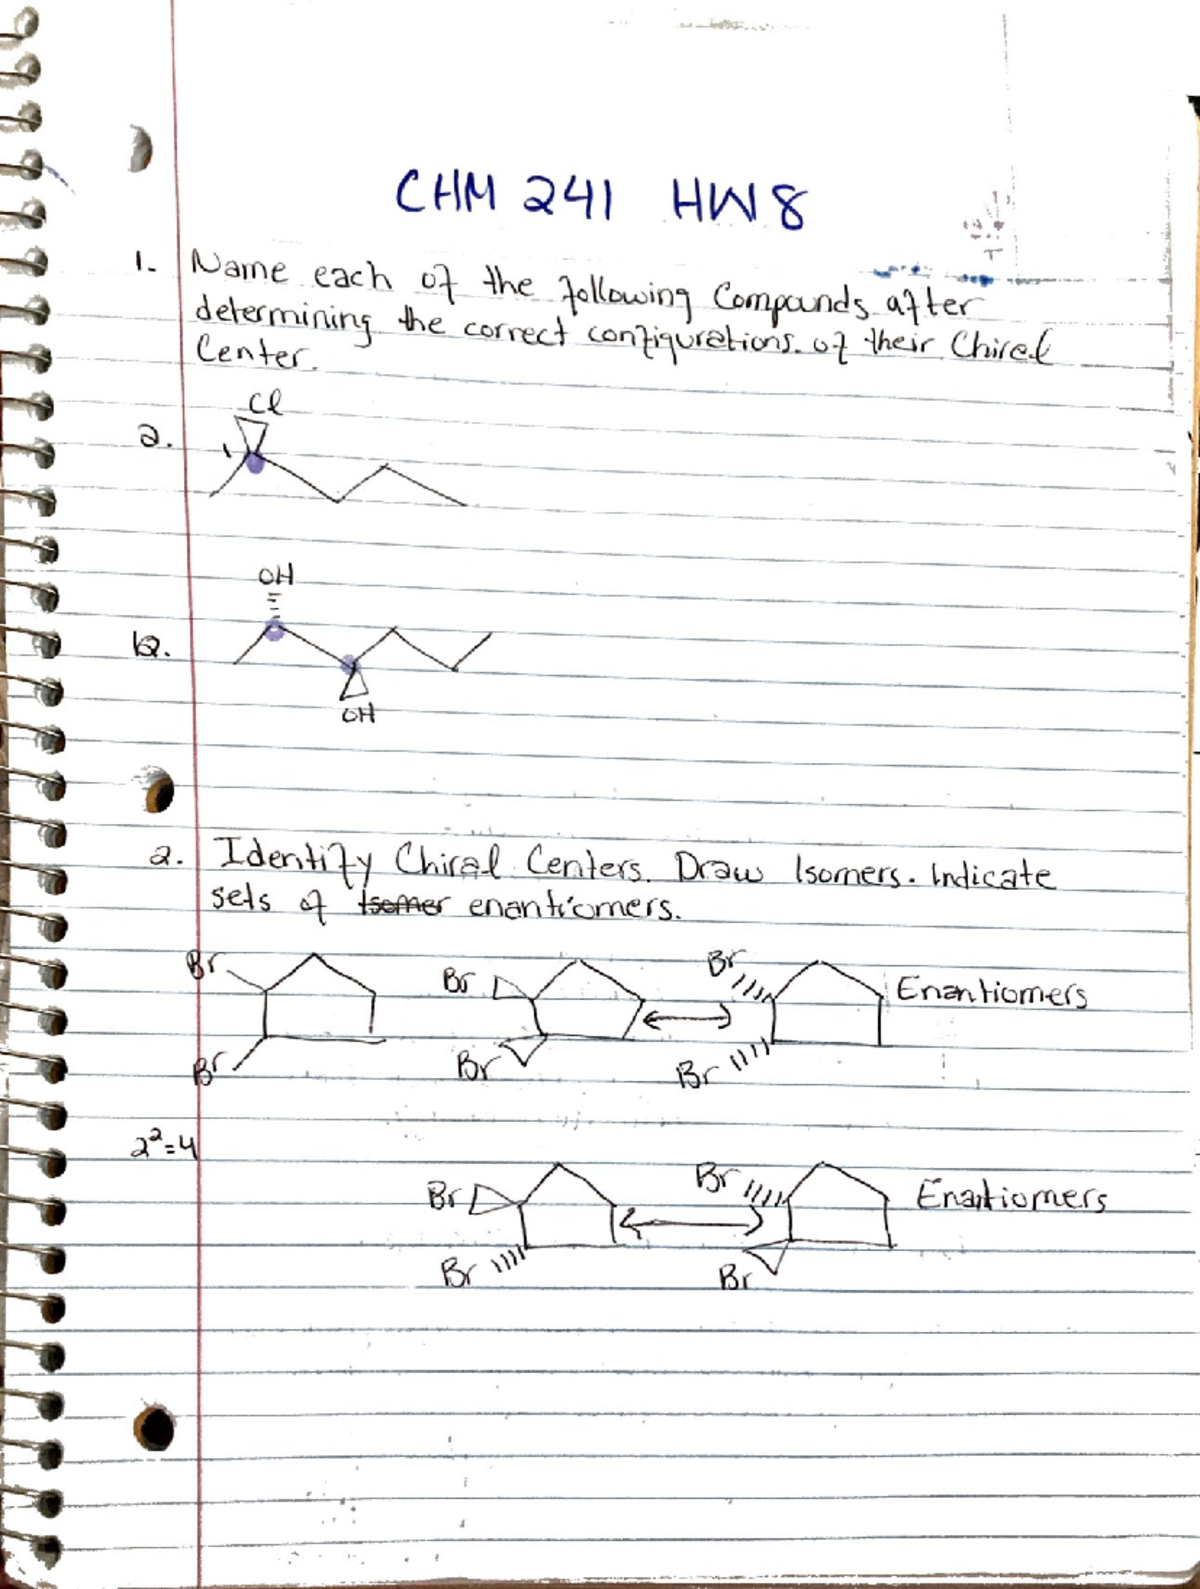 CHM 241 HW8
1. Name each of the following Compounds after
determining the correct configurations of their Chiral
Center.
Cl
a.
OH
b.
OH
2. Identify Chiral Centers. Draw Isomers. Indicate
sets of Isomer enantiomers.
Br Br Br Enantiomers
Br Br Br
2²=4
Br Br Enantiomers
Br Br